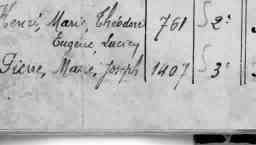 Henri, Marie, Théodore 761 S 2e
Eugène, Lucien
Pierre, Marie, Joseph 1407 S 3e